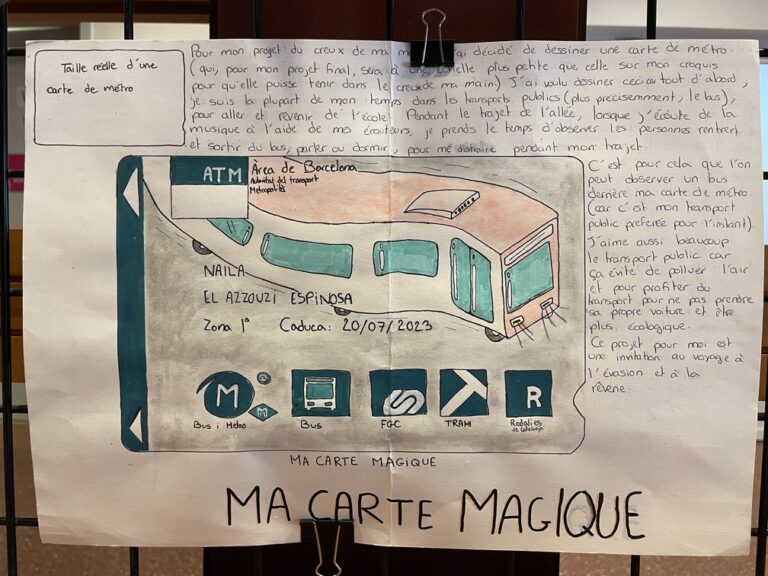 Taille réelle d'une
carte de métro
Pour mon projet du creux de ma j'ai décidé de dessiner une carte de métro.
(qui, pour mon projet final, sera à une échelle plus petite que celle sur mon croquis
pour qu'elle puisse tenir dans le creux de ma main.) J'ai voulu dessiner ceci car tout d'abord,
je suis la plupart de mon temps dans les transports publics (plus precisement, le bus),
pour aller et revenir de l'école. Pendant le trajet de l'allée, losque j'écoute de la
musique à l'aide de mes écouteurs, je prends le temps d'observer les personnes rentrer
et sortir du bus, parler ou dormir, pour me distraire pendant mon trajet.
C'est pour cela que l'on
peut observer un bus
derrière ma carte de métro.
(car c'est mon transport
public préferée pour l'instant)
J'aime aussi beaucoup
le transport public car
ça évite de polluer l'air
et pour profiter du
transport pour ne pas prendre
sa propre voiture et être
plus écologique.
Ce projet pour moi est
une invitation au voyage à
l'évasion et à la
rêverie.
ATM
Àrea de Barcelona
Autoritat del transport
Metropolità
NAILA
EL AZZOUZI ESPINOSA
Zona 1ª Caduca: 20/07/2023
M
M
R
Bus i Metro
Bus
FGC
TRAM
Rodalies
de Catalunya
MA CARTE MAGIQUE
MA CARTE MAGIQUE